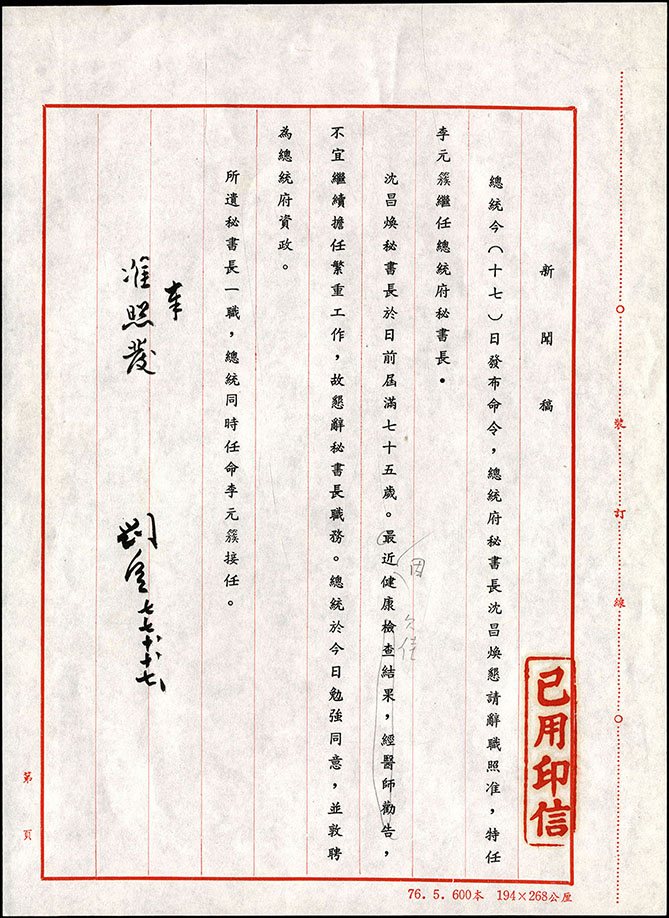 新聞稿
總統今(十七)日發布命令，總統府秘書長沈昌煥懇請辭職照准，特任
李元簇繼任總統府秘書長．
沈昌煥秘書長於日前屆滿七十五歲。最近健康檢查結果，經醫師勸告，
因
欠佳
不宜繼續擔任繁重工作，故懇辭秘書長職務。總統於今日勉強同意，並敦聘
為總統府資政。
所遺秘書長一職，總統同時任命李元簇接任。
奉
准照發
七七 十 十七
已用印信
裝訂線
第 頁
76. 5. 600本 194×268公厘